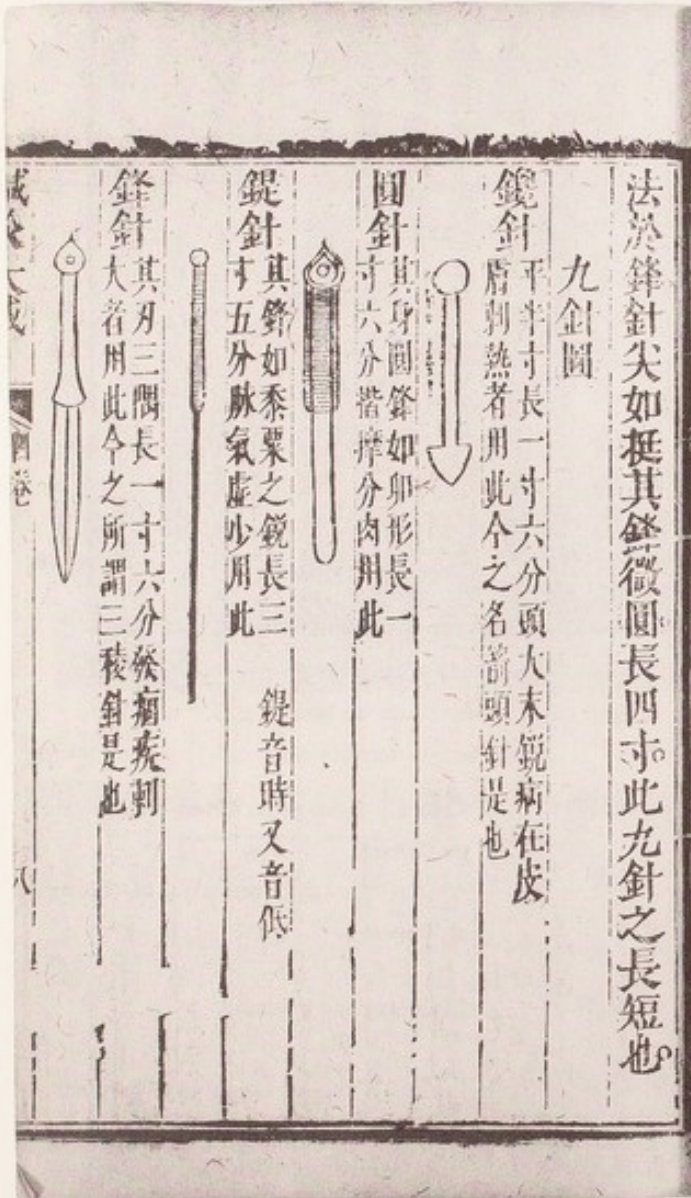 法於鋒針尖如挺其鋒微圓長四寸此九針之長短也
九針圖
鑱針
平半寸長一寸六分頭大末鋭病在皮
膚刺熱者用此今之名箭頭針是也
圓針
其身圓鋒如卵形長一
寸六分揩摩分肉用此
鍉針
其鋒如黍粟之鋭長三
寸五分脉氣虚少用此
鍉音時又音低
鋒針
其刃三隅長一寸六分發痼疾刺
大者用此今之所謂三稜針是也
大成
卷
八